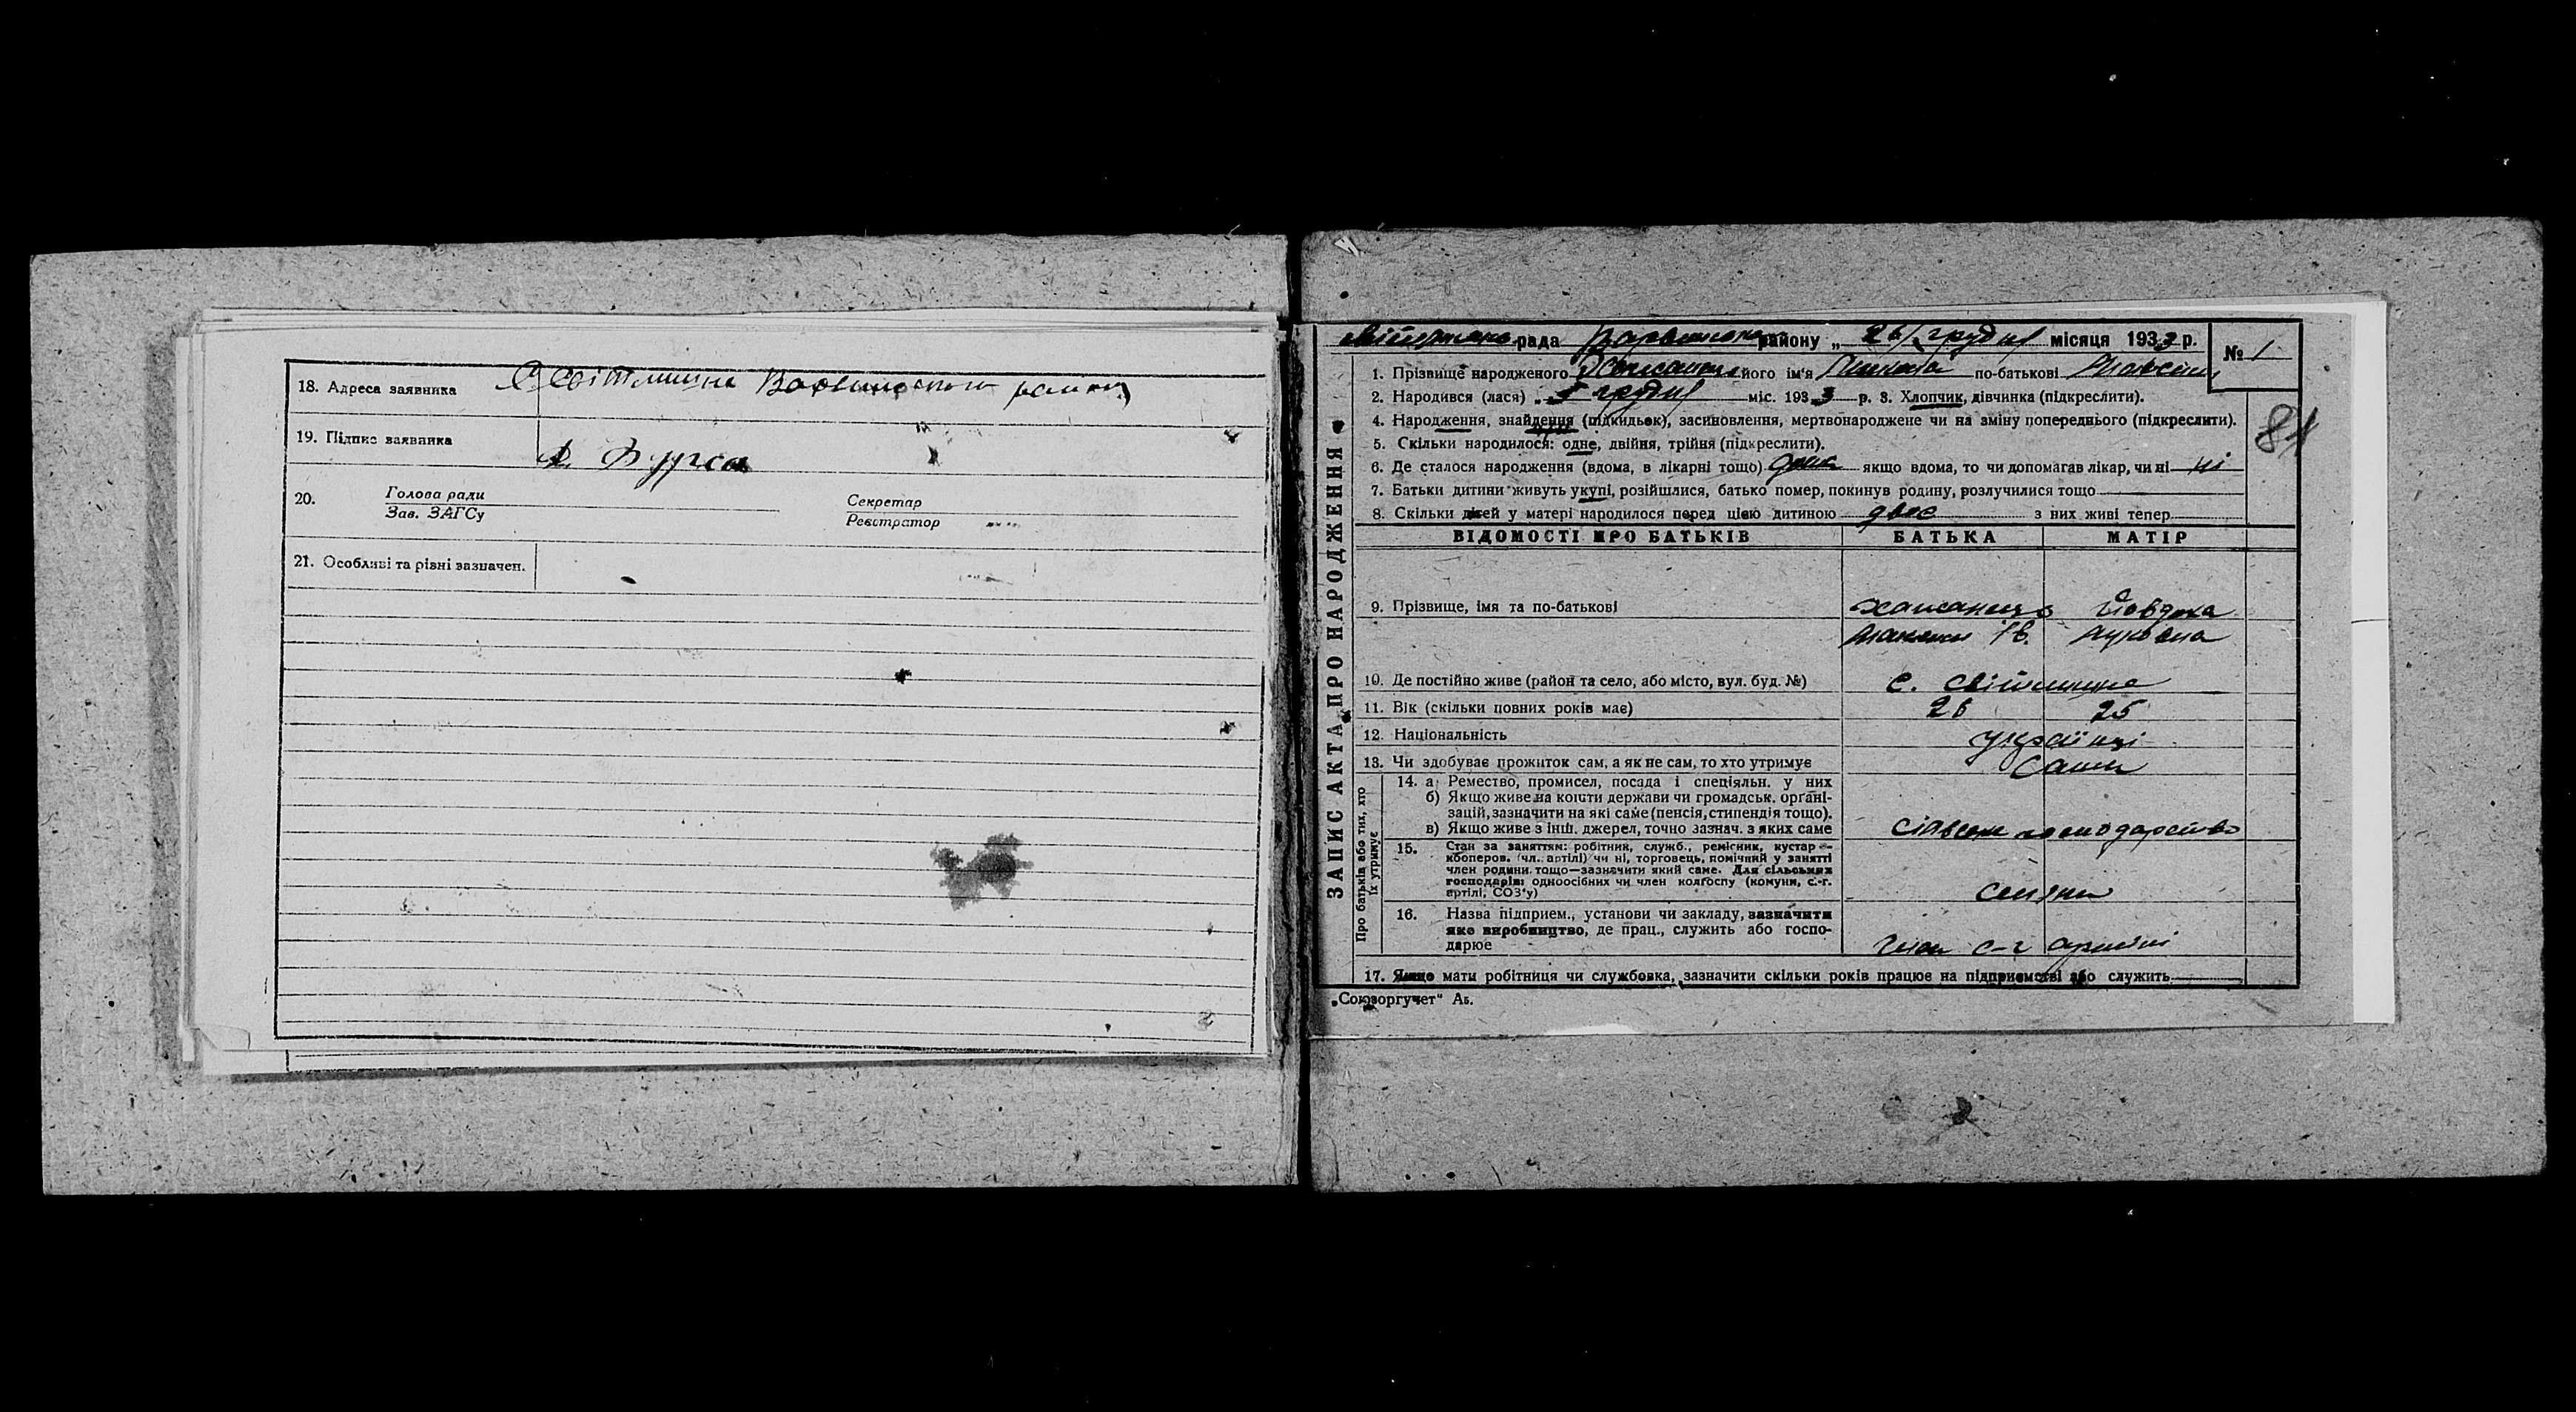 18. Адреса заявника С Світличне Варвинського району
19. Підпис заявника
20. Голова ради Секретар
Зав. ЗАГСу Реєстратор
21. Особливі та різні зазначен.
ЗАПИС АКТА ПРО НАРОДЖЕННЯ
рада Варвинського району „ 26 грудня місяця 1933 р. № 1
1. Прізвище народженого його ім'я Микола по-батькові
2. Народився (лася) „ грудня міс. 1933 р. 3. Хлопчик, дівчинка (підкреслити).
81
4. Народження, знайдення (підкидьок), засиновлення, мертвонароджене чи на зміну попереднього (підкреслити).
5. Скільки народилося: одне, двійня, трійня (підкреслити).
6. Де сталося народження (вдома, в лікарні тощо) дома якщо вдома, то чи допомагав лікар, чи ні ні
7. Батьки дитини живуть укупі, розійшлися, батько помер, покинув родину, розлучилися тощо
8. Скільки дітей у матері народилося перед цією дитиною двоє з них живі тепер
ВІДОМОСТІ ПРО БАТЬКІВ БАТЬКА МАТІР
9. Прізвище, імя та по-батькові Явдоха
10. Де постійно живе (район та село, або місто, вул. буд. №) с. Світличне
11. Вік (скільки повних років має) 26 25
12. Національність українці
13. Чи здобуває прожиток сам, а як не сам, то хто утримує сами
Про батьків або тих, хто їх утримує
14. а) Ремество, промисел, посада і спеціяльн. у них
б) Якщо живе на кошти держави чи громадськ. органі-
зацій, зазначити на які саме (пенсія, стипендія тощо).
в) Якщо живе з інш. джерел, точно зазнач. з яких саме сільське господарство
15. Стан за заняттям: робітник, служб., ремісник, кустар—
кооперов. (чл. артілі) чи ні, торговець, помічний у занятті
член родини тощо—зазначити який саме. Для сільських
господарів: одноосібних чи член колгоспу (комуни, с.-г.
артілі, СОЗ'у) селяни
16. Назва підприєм., установи чи закладу, зазначити
яке виробництво, де прац., служить або госпо-
дарює член с-г артілі
17. Якщо мати робітниця чи службовка, зазначити скільки років працює на підприємстві або служить
„Союзоргучет" Аб.